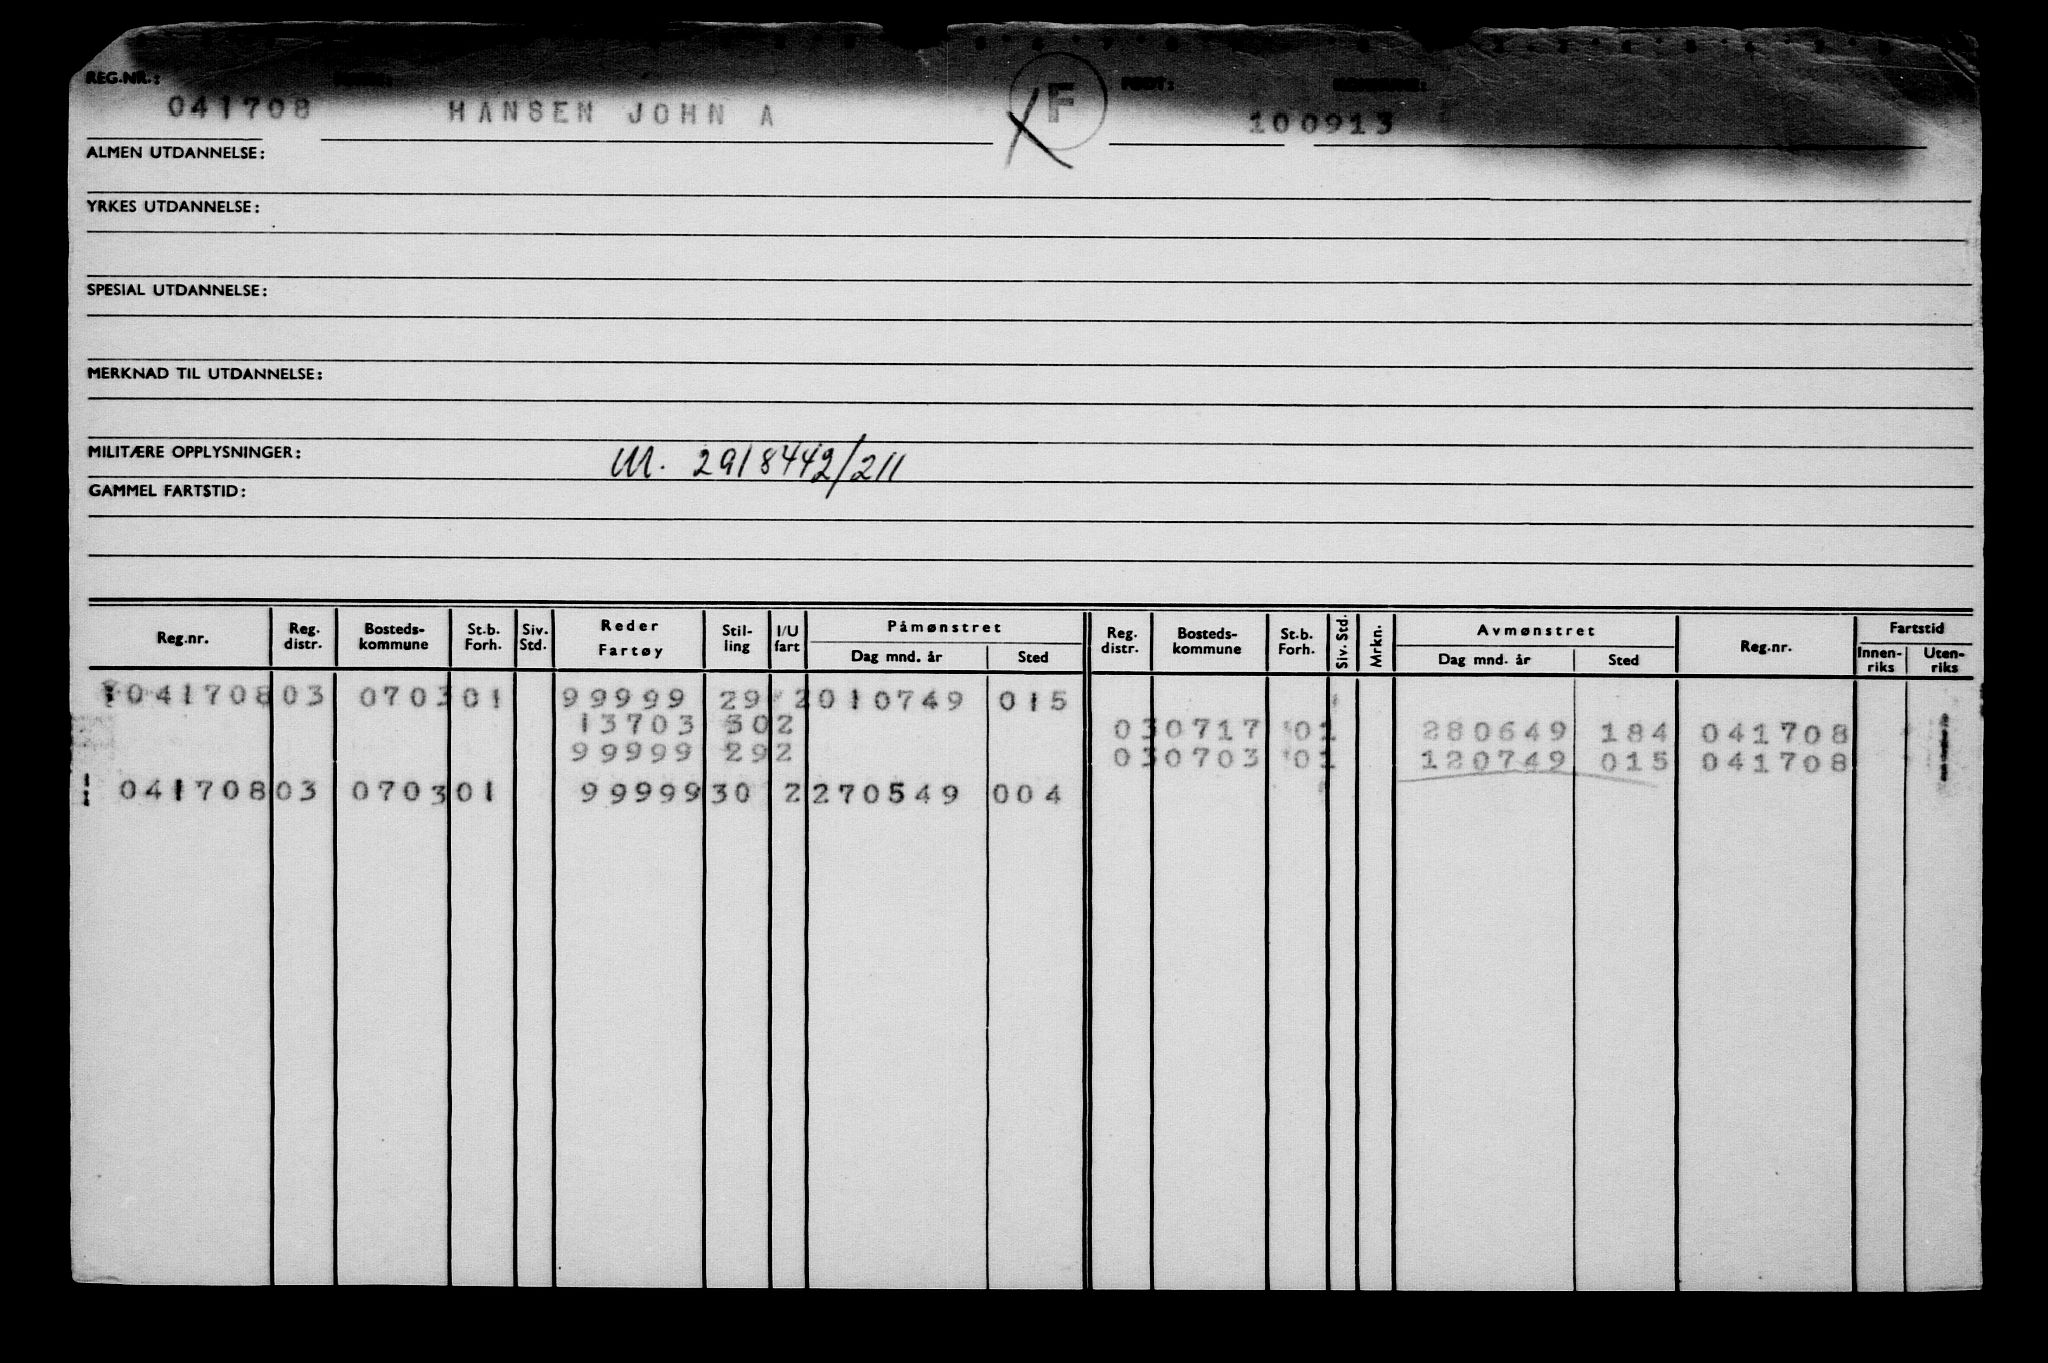 REG.NR.: FØDT:
041708 HANSEN JOHN A F 100913
ALMEN UTDANNELSE:
YRKES UTDANNELSE:
SPESIAL UTDANNELSE:
MERKNAD TIL UTDANNELSE:
MILITÆRE OPPLYSNINGER: M. 2918442/211
GAMMEL FARTSTID:
Reg.nr. Reg. distr. Bosteds-kommune St.b. Forh. Siv. Std. Reder Fartøy Stil-ling I/U fart Påmønstret Dag mnd. år Sted Reg. distr. Bosteds-kommune St.b. Forh. Siv. Std. Mrkn. Avmønstret Dag mnd. år Sted Reg.nr. Fartstid Innen-riks Uten-riks
041708 03 0703 01 99999 29 2 010749 015
13703 30 2 03 0717 01 280649 184 041708
99999 29 2 03 0703 01 120749 015 041708
041708 03 0703 01 99999 30 2 270549 004